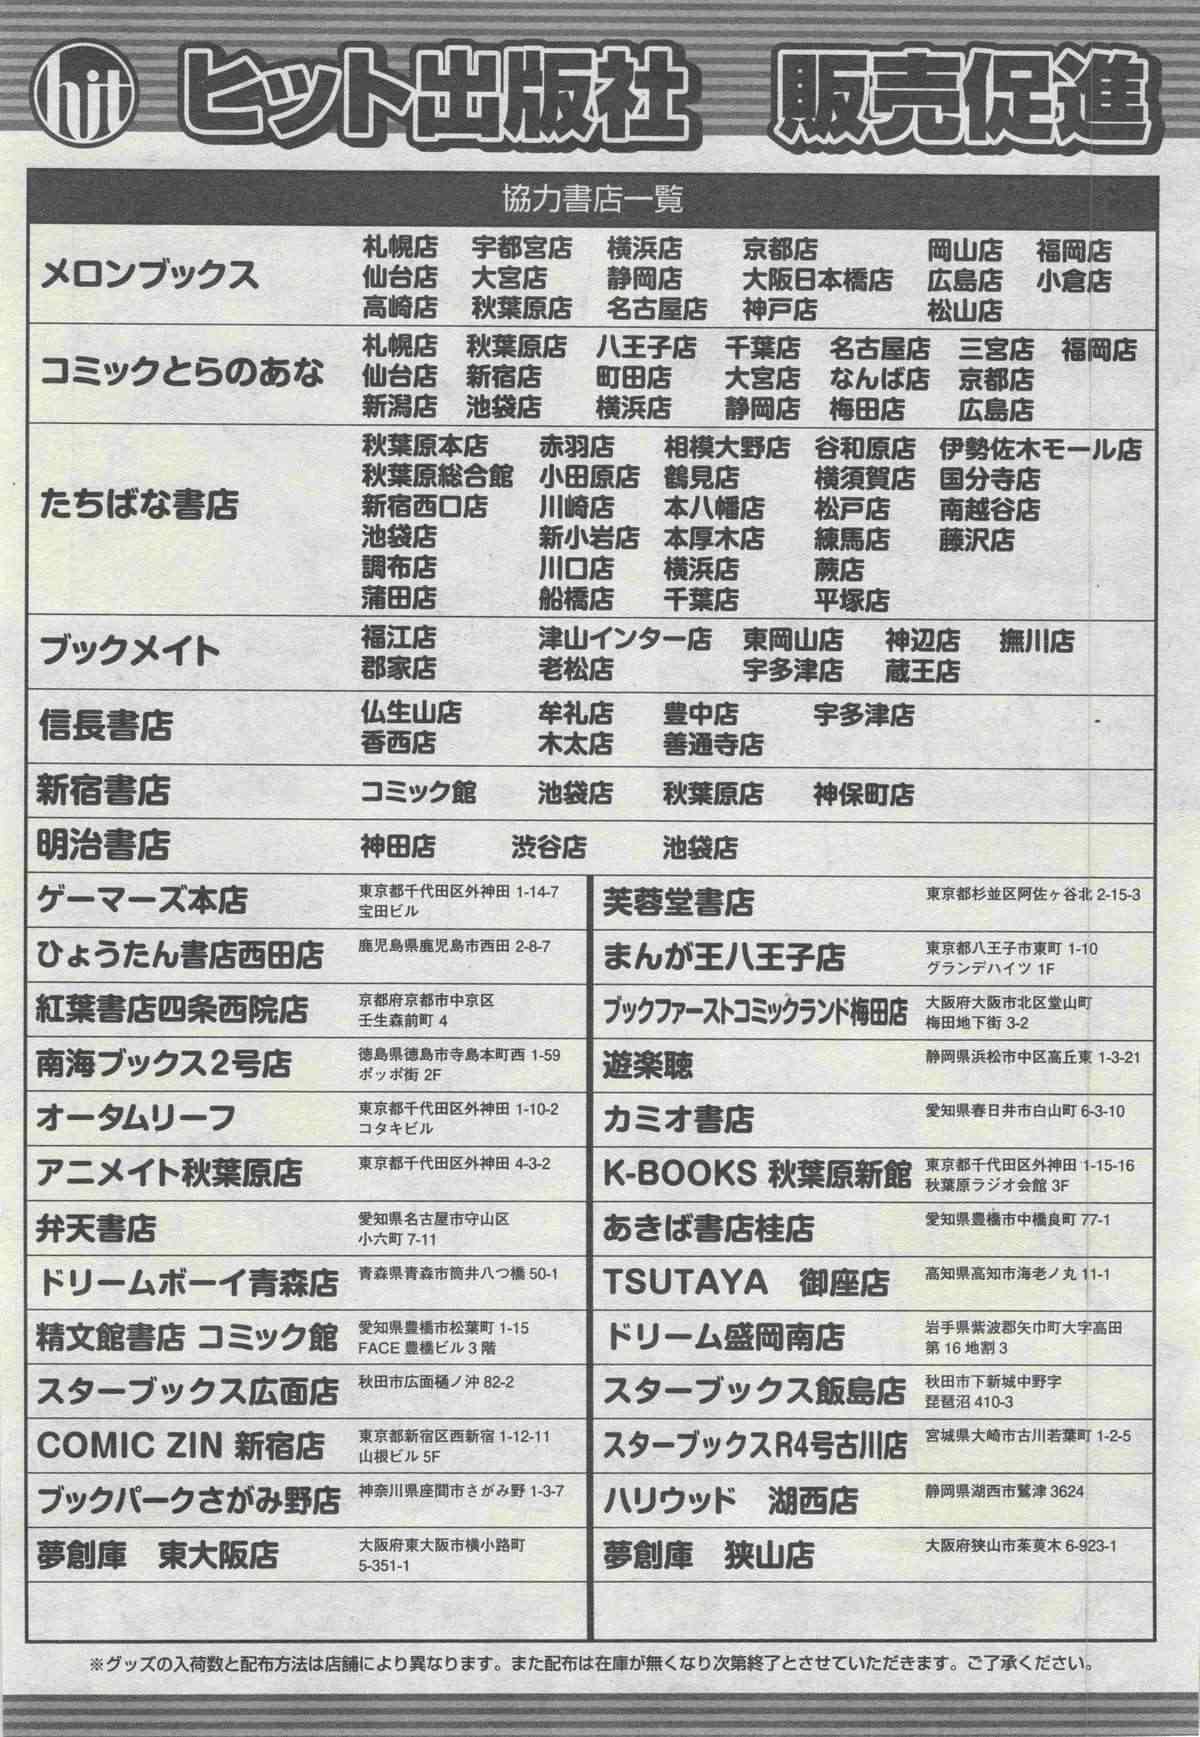 hit ヒット出版社 販売促進
協力書店一覧
メロンブックス
札幌店 宇都宮店 横浜店 京都店 岡山店 福岡店
仙台店 大宮店 静岡店 大阪日本橋店 広島店 小倉店
高崎店 秋葉原店 名古屋店 神戸店 松山店
コミックとらのあな
札幌店 秋葉原店 八王子店 千葉店 名古屋店 三宮店 福岡店
仙台店 新宿店 町田店 大宮店 なんば店 京都店
新潟店 池袋店 横浜店 静岡店 梅田店 広島店
たちばな書店
秋葉原本店 赤羽店 相模大野店 谷和原店 伊勢佐木モール店
秋葉原総合館 小田原店 鶴見店 横須賀店 国分寺店
新宿西口店 川崎店 本八幡店 松戸店 南越谷店
池袋店 新小岩店 本厚木店 練馬店 藤沢店
調布店 川口店 横浜店 蕨店
蒲田店 船橋店 千葉店 平塚店
ブックメイト
福江店 津山インター店 東岡山店 神辺店 撫川店
郡家店 老松店 宇多津店 蔵王店
信長書店
仏生山店 牟礼店 豊中店 宇多津店
香西店 木太店 善通寺店
新宿書店 コミック館 池袋店 秋葉原店 神保町店
明治書店 神田店 渋谷店 池袋店
ゲーマーズ本店 東京都千代田区外神田 1-14-7
宝田ビル
芙蓉堂書店 東京都杉並区阿佐ヶ谷北 2-15-3
ひょうたん書店西田店 鹿児島県鹿児島市西田 2-8-7
まんが王八王子店 東京都八王子市東町 1-10
グランデハイツ 1F
紅葉書店四条西院店 京都府京都市中京区
壬生森前町 4
ブックファーストコミックランド梅田店 大阪府大阪市北区堂山町
梅田地下街 3-2
南海ブックス2号店 徳島県徳島市寺島本町西 1-59
ポッポ街 2F
遊楽聴 静岡県浜松市中区高丘東 1-3-21
オータムリーフ 東京都千代田区外神田 1-10-2
コタキビル
カミオ書店 愛知県春日井市白山町 6-3-10
アニメイト秋葉原店 東京都千代田区外神田 4-3-2
K-BOOKS 秋葉原新館 東京都千代田区外神田 1-15-16
秋葉原ラジオ会館 3F
弁天書店 愛知県名古屋市守山区
小六町 7-11
あきば書店桂店 愛知県豊橋市中橋良町 77-1
ドリームボーイ青森店 青森県青森市筒井八つ橋 50-1
TSUTAYA 御座店 高知県高知市海老ノ丸 11-1
精文館書店 コミック館 愛知県豊橋市松葉町 1-15
FACE 豊橋ビル 3 階
ドリーム盛岡南店 岩手県紫波郡矢巾町大字高田
第 16 地割 3
スターブックス広面店 秋田市広面樋ノ沖 82-2
スターブックス飯島店 秋田市下新城中野字
琵琶沼 410-3
COMIC ZIN 新宿店 東京都新宿区西新宿 1-12-11
山根ビル 5F
スターブックスR4号古川店 宮城県大崎市古川若葉町 1-2-5
ブックパークさがみ野店 神奈川県座間市さがみ野 1-3-7
ハリウッド 湖西店 静岡県湖西市鷲津 3624
夢創庫 東大阪店 大阪府東大阪市横小路町
5-351-1
夢創庫 狭山店 大阪府狭山市茱萸木 6-923-1
※グッズの入荷数と配布方法は店舗により異なります。また配布は在庫が無くなり次第終了とさせていただきます。ご了承ください。